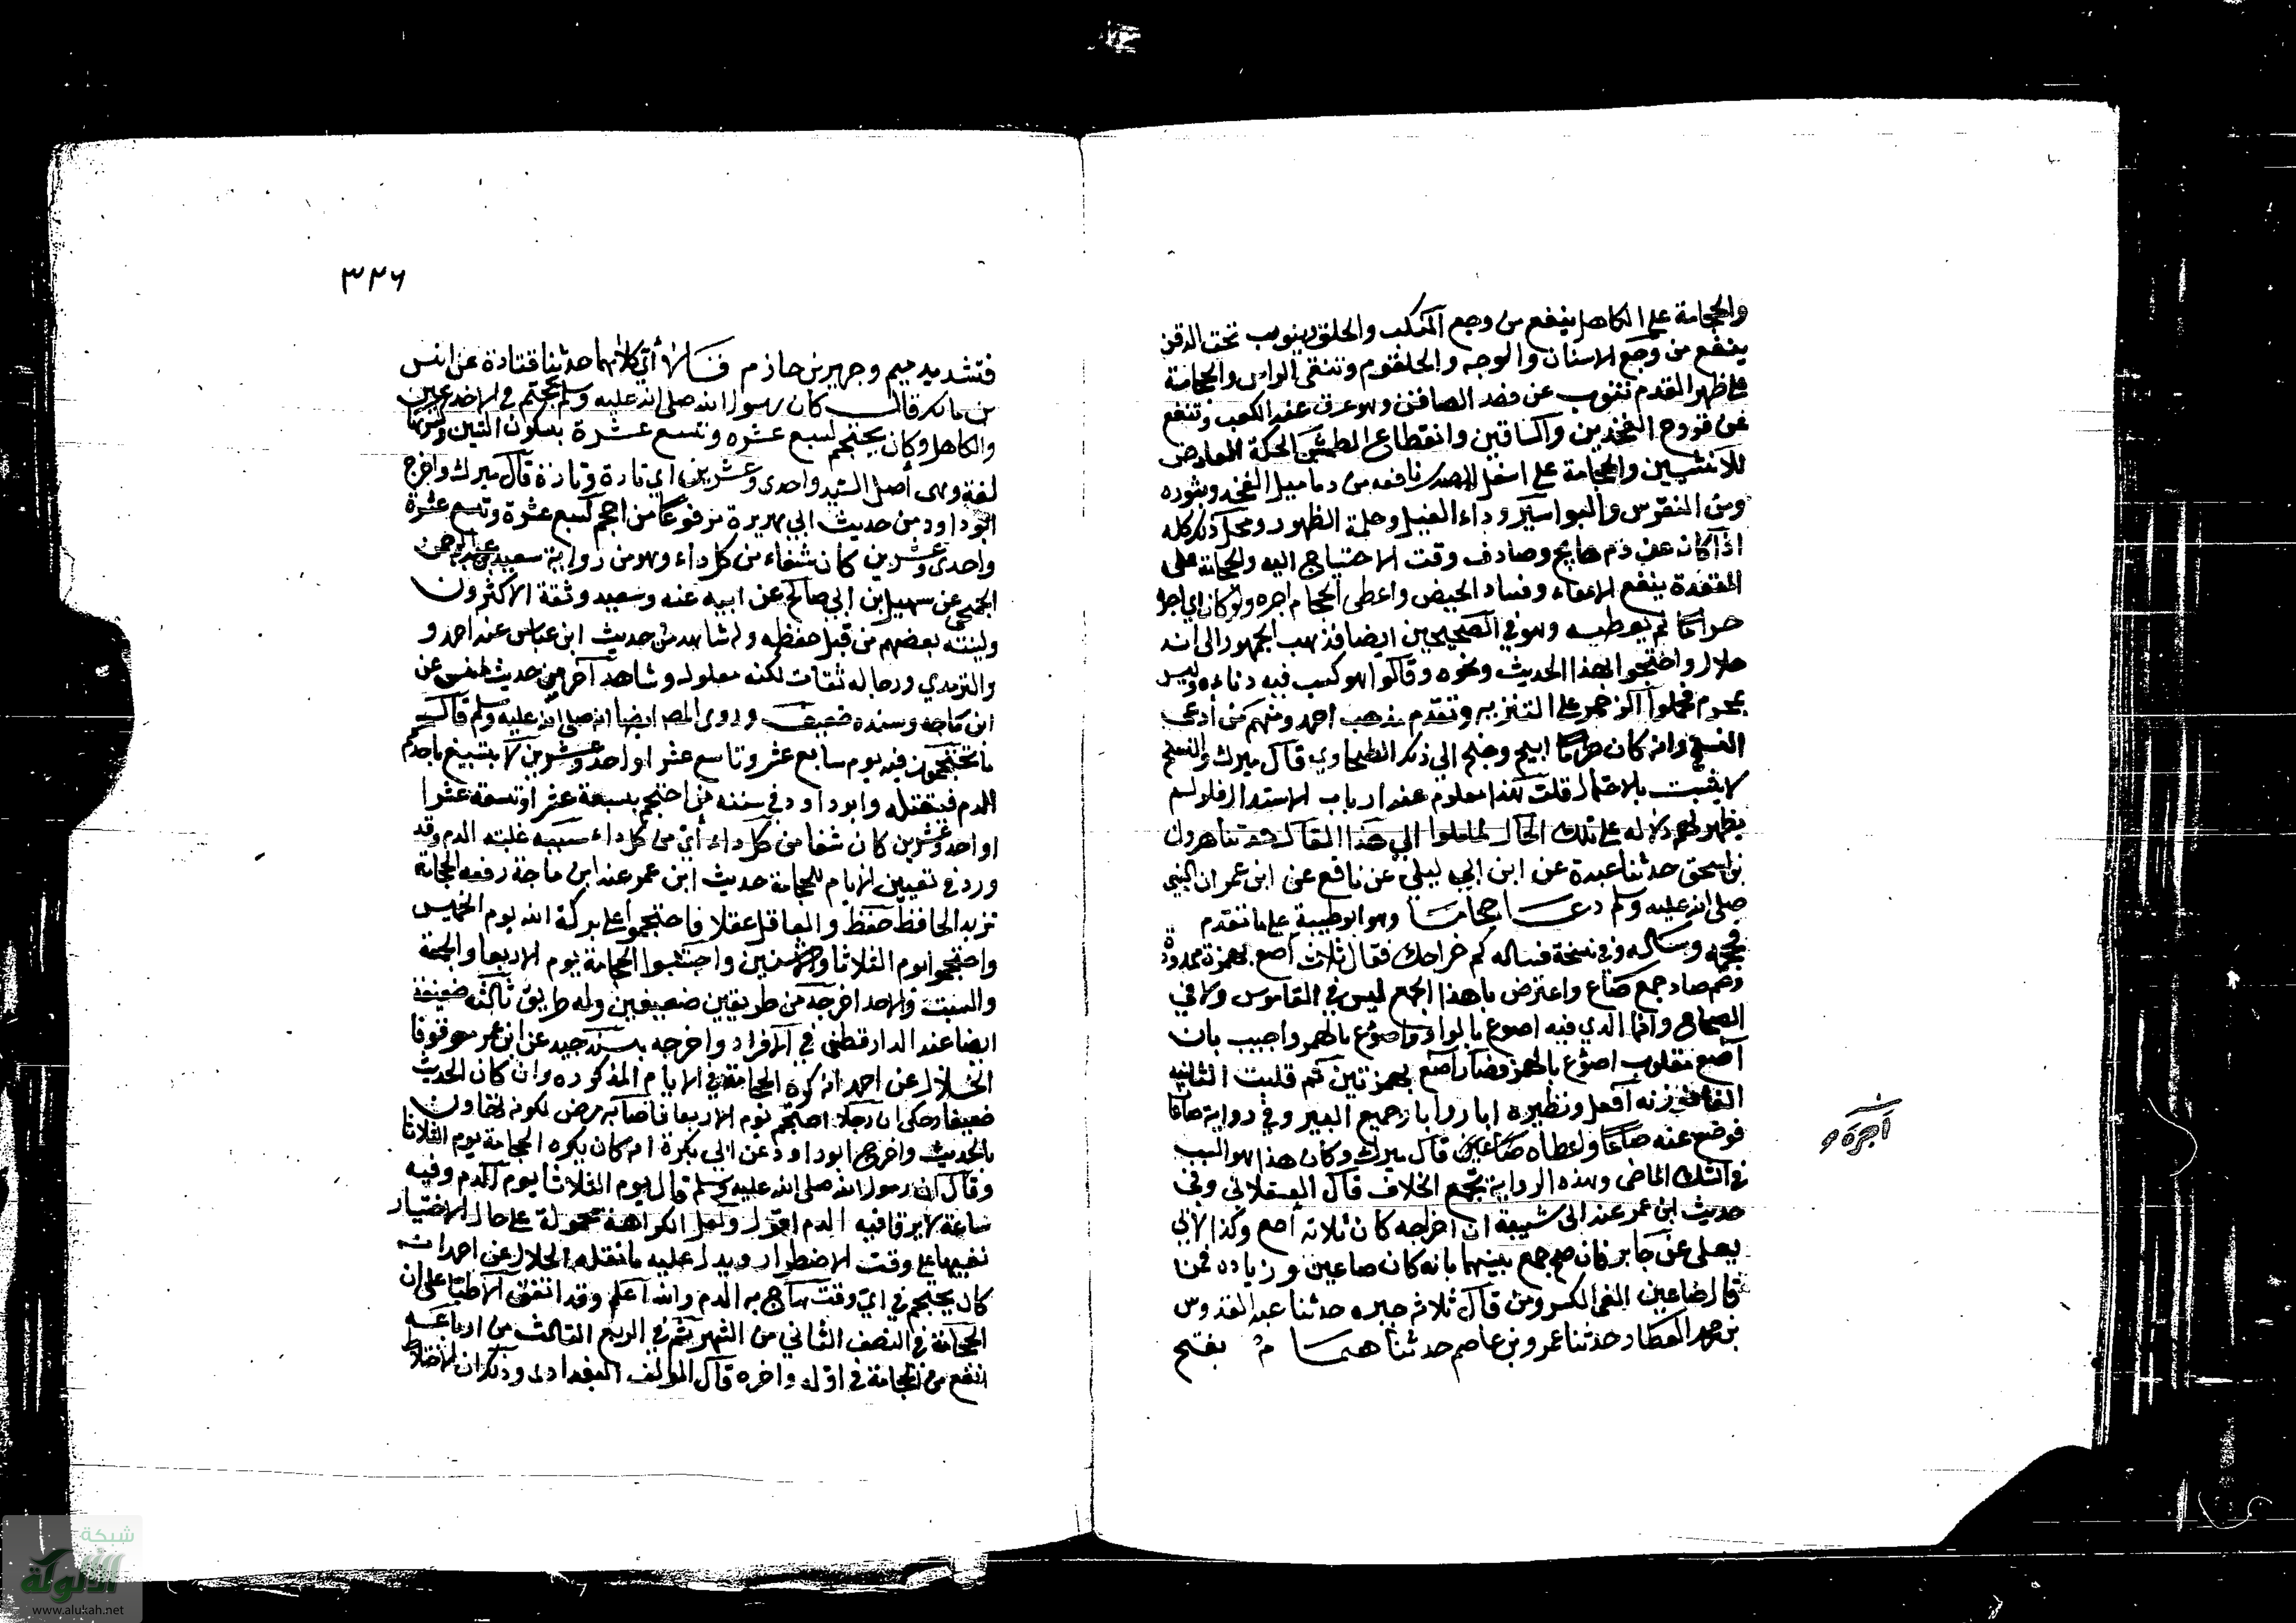 والحجامة على الكاهل ينفع من وجع المنكب والحلق وينوب تحت الذقن
ينفع من وجع الاسنان والوجه والحلقوم وتنقى الراس والحجامة
على ظهر القدم تنوب عن فصد الصافن وهو عرق عند الكعب وتنفع
عن قروح الفخذين والساقين وانقطاع الطمث والحكة العارض
للانثيين والحجامة على اسفل الصدر نافعه من دماميل الفخذ وبثوره
ومن النقرس والبواسير وداء الفيل وحكة الظهور ومحل ذلك كله
اذا كان عن دم هايج وصادف وقت الاحتياج اليه والحجامة على
المقعدة ينفع الامعاء وفساد الحيض واعطى الحجام اجره ولو كان اي اجرا
حراما لم يعطه وهو في الصحيحين ايضا فذهب الجمهور الى انه
حلال واحتجوا بهذا الحديث ونحوه وقالوا هو كسب فيه دناءه وليس
بمحرم فحملوا الزجر على التنزيه وتقدم مذهب احمد ومنهم من ادعى
النسخ وانه كان حراما ابيح وجنح الى ذلك الطحاوي قال ميرك والنسخ
لا يثبت بالاحتمال قلت هذا معلوم عند ارباب الاستدلال فلو لم
يظهر لهم دلاله على تلك الحال لما ملوا الى هذا المقال حدثنا هرون
بن اسحق حدثنا عبدة عن ابن ابي ليلى عن نافع عن ابن عمر ان النبي
صلى الله عليه وسلم دعا حجاما وهو ابو طيبة على ما تقدم
فحجمه وساله وفي نسخة فساله كم خراجك فقال ثلاث آصع بهمزة ممدودة
وضم صاد جمع صاع واعترض بان هذا الجمع ليس في القاموس ولا في
الصحاح وانما الذي فيه اصوع بالواو واصؤع بالهمز واجيب بان
آصع مقلوب اصؤع بالهمز فصار أأصع بهمزتين ثم قلبت الثانيه
الفا فوزنه أعفل ونظيره ابار وابار جمع البير وفي رواية صاعا
فوضع عنه صاعا واعطاه صاعين قال ميرك وكان هذا هو السبب
في الشك الماضي وبهذه الرواية يجمع الخلاف قال العسقلاني وفي
حديث ابن عمر عند ابى شيبة ان خراجه كان ثلاثه آصع وكذا لابي
يعلى عن جابر فان صح جمع بينهما بانه كان صاعين وزياده فمن
قال صاعين الغى الكسر ومن قال ثلاثه جبره حدثنا عبد القدوس
بن محمد العطار حدثنا عمرو بن عاصم حدثنا همام بفتح
اجره
٣٢٦
فتشديد ميم وجرير بن حازم قالا أي كلاهما حدثنا قتادة عن انس
بن مالك قال كان رسول الله صلى الله عليه وسلم يحتجم في الاخدعين
والكاهل وكان يحتجم لسبع عشره وتسع عشرة بسكون الشين وكسرها
لغة وهى اصل السيد واحدى وعشرين اي تارة وتارة قال ميرك واخرج
ابو داود من حديث ابي هريرة مرفوعا من احتجم لسبع عشرة وتسع عشرة
واحدى وعشرين كان شفاء من كل داء وهو من رواية سعيد بن عبد الرحمن
الجمحي عن سهيل بن ابي صالح عن ابيه عنه وسعيد وثقة الاكثرون
ولينه بعضهم من قبل حفظه وله شاهد من حديث ابن عباس عند احمد و
والترمذي ورجاله ثقات لكنه معلول وشاهد آخر من حديث انس عن
ابن ماجه وسنده ضعيف وروى المص ايضا انه صلى الله عليه وسلم قال
ما تحتجمون فيه يوم سابع عشر وتاسع عشر او احد وعشرين لا يتبيغ باحدكم
الدم فيقتله وابو داود في سننه من احتجم بسبعة عشر او تسعة عشر
او احد وعشرين كان شفا من كل داء أي من كل داء سببه غلبه الدم وقد
ورد في تعيين الايام للحجامة حديث ابن عمر عند ابن ماجة رفعه الحجامة
تزيد الحافظ حفظا والعاقل عقلا فاحتجموا على بركة الله يوم الخميس
واحتجموا يوم الثلاثا والاثنين واجتنبوا الحجامة يوم الاربعا والجمعة
والسبت والاحد اخرجه من طريقين ضعيفين وله طريق ثالث ضعيفة
ايضا عند الدارقطني في الافراد واخرجه بسند جيد عن ابن عمر موقوفا
الخلال عن احمد انه كره الحجامة في الايام المذكوره وان كان الحديث
ضعيفا وحكى ان رجلا احتجم يوم الاربعا فاصابه مرض لكونه تهاون
بالحديث واخرج ابو داود عن ابي بكرة انه كان يكره الحجامة يوم الثلاثا
وقال ان رسول الله صلى الله عليه وسلم قال يوم الثلاثا يوم الدم وفيه
ساعة لا يرقا فيه الدم اقول ولعل الكراهة محمولة على حال الاختيار
نفيها على وقت الاضطرار ويدل عليه ما نقله الخلال عن احمد انه
كان يحتجم في اي وقت هاج به الدم والله اعلم وقد اتفق الاطبا على ان
الحجامة في النصف الثاني من الشهر ثم في الربع الثالث من ارباعه
انفع من الحجامة في اوله واخره قال الموفق البغدادى وذلك ان الاخلاط
شبكة
الألوكة
www.alukah.net